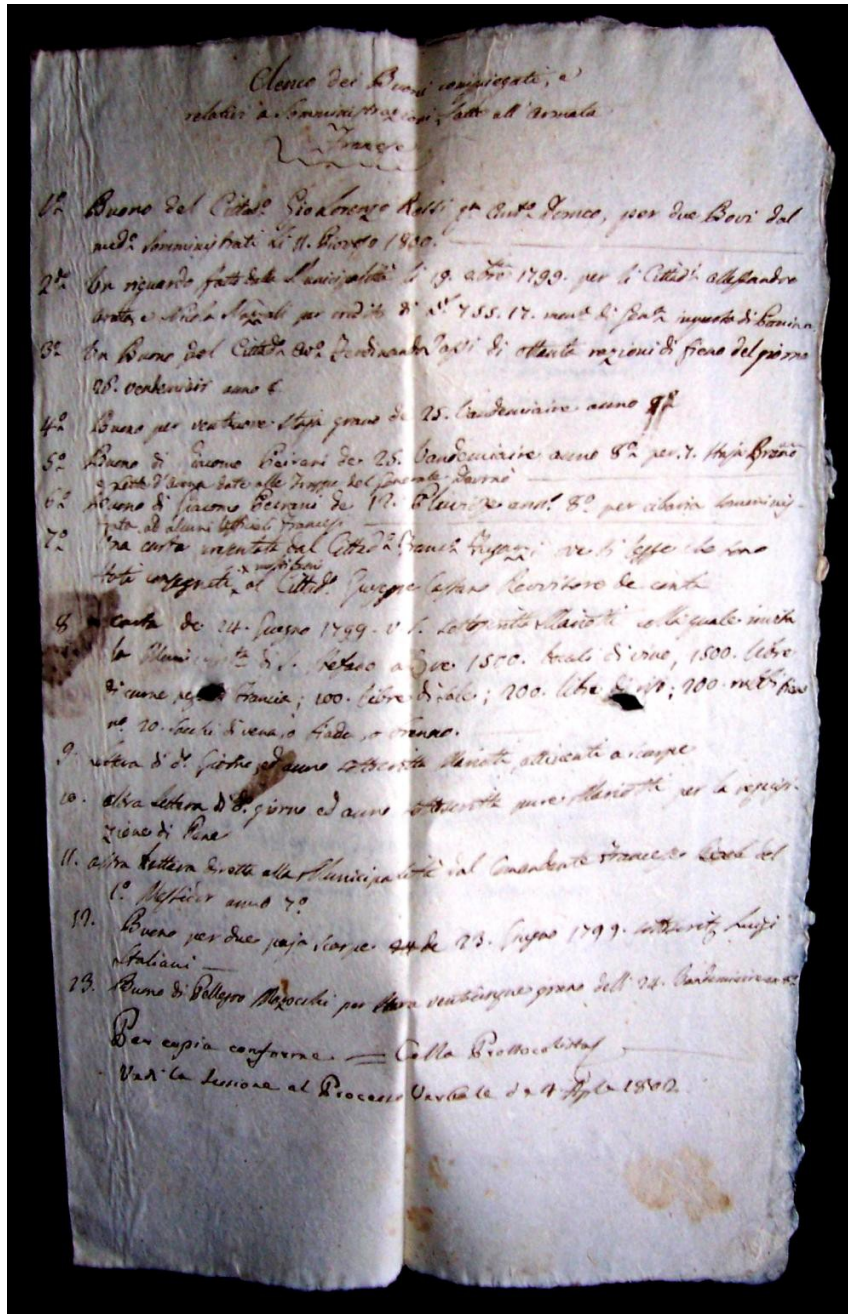 Elenco dei Buoni compiegati, e
relativi a Somministrazioni fatte all'Armata
Francese
1º Buono del Cittadº Gio Lorenzo Rossi qm Antº Domco, per due Bovi dal
medº Somministrati li 11. 1800.
2º Un riguardo fatto dalla Municipalità li 19. 1799. per li Cittadi Alessandro
e Nicola per credito di 755.17. di
3º Un Buono del Cittadº Ferdinando di ottanta razioni di fieno del giorno
26. vendemiair anno 8.
4º Buono per ventinove Staja grano de 25. Vandemiaire anno 8º
5º Buono di Giacomo Peirani de 25. Vandemiaire anno 8º per 7. Staja
date alle Truppe del Generale
6º Buono di Giacomo Peirani de 12. anno 8º per cibaria sommini-
strata ad alcuni Francesi
7º Una carta del Cittadº Francº ove si legge che sono
stati consegnati al Cittadº Giuseppe Cassano Revvisore de conti
8 carta de 24. Giugno 1799. v. s. Sottoscritta Mariotti colla quale invita
la di S. Stefano a 1500. bocali di vino, 1500. libre
di carne Francia; 100. libre di sale; 200. libre di riso; 200. rubbi fieno
nº 20. sacchi di vena, o biada, o
9. Lettera di dº Giorno, ed anno sottoscritta Mariotti attinenti a scarpe
10. altra Lettera di dº giorno ed anno sottoscritta pure Mariotti per la
zione di Pane
11. altra Lettera diretta alla Municipalità dal Comandante Francese del
1º Messidor anno 7º
12. Buono per due paja scarpe de 23. Giugno 1799. Luigi
Italiani
13. Buono di Pellegro per Stara venticinque grano dell' 24. Vandemiaire an 8º
Per copia conforme = Colla Prottocolista
Vedi la Sessione al Processo Verbale de 4 Aple 1802.